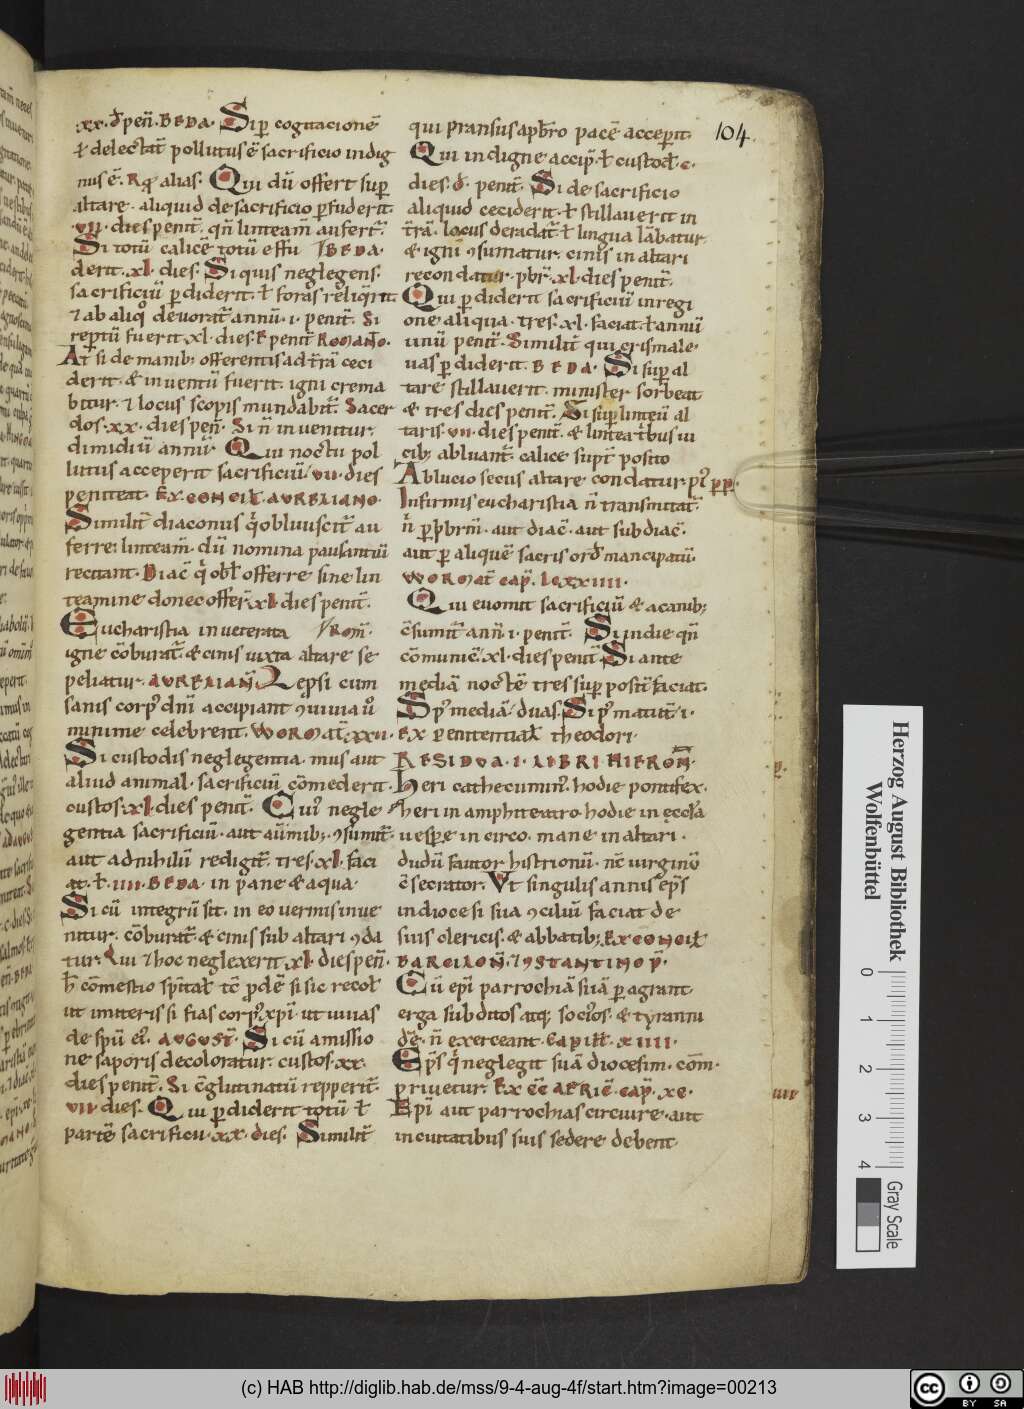 104
xx. d' peñ. BEDA. Si p cogitacionē
ł delectat̄ pollutus ē sacrificio indig
nus ē. Rōp alias. Qui dū offert sup
altare. aliquid de sacrificio pfuderit.
VII. dies penit̄. qñ linteam̄ aufert̄.
Si totū calicē totū effu BEDA.
derit. xl. dies. Si quis neglegens.
sacrificiū pdiderit. ł foras reliqrit
⁊ ab aliqo deuorat̄ annū. i. penit̄. Si
reptū fuerit. xl. dies. penit̄ ROMANO.
At si de manib; offerentis ad t̄rā ceci
derit. & inuentū fuerit. igni crema
bitur. ⁊ locus scopis mundabit̄. Sacer
dos. xx. dies peñ. Si ñ inuenitur.
dimidiū annū. Qui noctu pol
lutus acceperit sacrificiū. VII. dies
peniteat. EX CONCIL̄. AURELIANO.
Similit̄ diaconus q̇ obliuiscit̄ au
ferre linteam̄. dū nomina pausantiū
recitant. Diac̄ q̇ obl̄ offerre sine lin
teamine donec offer̄. xl. dies penit̄.
Eucharistia inueterata ROM̄.
igne cōburat̄. & cinis iuxta altare se
peliatur. AURELIAÑ. Lepsi cum
sanis corp' dñi accipiant ꝯuiuia u°
minime celebrent. WORMAT̄. XXII.
Si custodis neglegentia. mus aut
aliud animal. sacrificiū cōmederit.
custos. xl. dies penit̄. Cui' negle
gentia sacrificiū. aut a uermib; ꝯsumit̄.
aut ad nihilū redigit̄. tres. xl. faci
at. ł. IIII. BEDA. in pane & aqua.
Si cū integrū sit. in eo uermis inue
nitur. cōburat̄. & cinis sub altari ꝯda
tur. Qui ⁊ hoc neglexerit. xl. dies peñ.
ħ cōmestio spīital̄ tc̄ pdē si sic recol̄
ut miteris si fias corp' xpi. ut uiuas
de spū ei'. AUGUST̄. Si cū amissio
ne saporis decoloratur. custos. xx.
dies penit̄. Si cōglutinatū repperit̄.
VII. dies. Qui pdiderit totū ł
partē sacrificii. xx. dies. Similit̄
qui pransus ap̄bro pacē acceperit.
Qui indigne accip̄. ł custod̄. c.
dies. d'. penit̄. Si de sacrificio
aliquid ceciderit. ł stillauerit in
t̄rā. locus deradat̄. ł lingua lābatur.
& igni ꝯsumatur. cinis in altari
recondatur. pbr̄. xl. dies penit̄.
Qui pdiderit sacrificiū in regi
one aliqua. tres. xl. faciat. ł annū
unū penit̄. Similit̄ qui crismale.
uas pdiderit. BEDA. Si sup al
tare stillauerit. minister sorbeat
& tres dies penit̄. Si sup linteū al
taris. VII. dies penit̄. & linteatibus III
cib; abluant̄. calice supt̄ posito
Ablucio secus altare condatur. pi' pp.
Infirmis eucharistia ñ transmittat̄.
ñ p pbrm̄. aut diac̄. aut subdiac̄.
aut p aliquē sacris ord̄ mancipatū.
WORMAT̄ CAP̄. LXXIIII.
Qui euomit sacrificiū & a canib;
c̄sumit̄ anñ. i. penit̄. Si in die qñ
cōmunic̄. xl. dies penit̄ Si ante
mediā noctē tres sup posit̄ faciat.
Sp' mediā. duas. Si p' matut̄. i.
Ex penitential̄ theodori.
RESIDUA. I. LIBRI HIERON̄.
Heri cathecumin'. hodie pontifex.
heri in amphiteatro. hodie in ęccl̄a
uespe in circo. mane in altari.
dudū fautor histrionū. nc̄ uirginū
c̄secrator. Vt singulis annis ep̄s
in diocesi sua ꝯciliū faciat de
suis clericis. & abbatib; EX CONCIL̄
BARCILOÑ. ⁊ ꝯSTANTINOP̄.
Cū ep̄i parrochiā suā pagrant.
erga subditos atq; socios. & tyranni
dē. ñ exerceant. CAPITL̄. XIIII.
Ep̄s q̇ neglegit suā diocesim. cōm.
priuetur. EX CC̄ AFRIC̄. CAP̄. XC.
Ep̄i aut parrochias circuire. aut
in ciuitatibus suis sedere debent
Herzog August Bibliothek
Wolfenbüttel
0 1 2 3 4
Gray Scale
(c) HAB http://diglib.hab.de/mss/9-4-aug-4f/start.htm?image=00213
cc BY SA